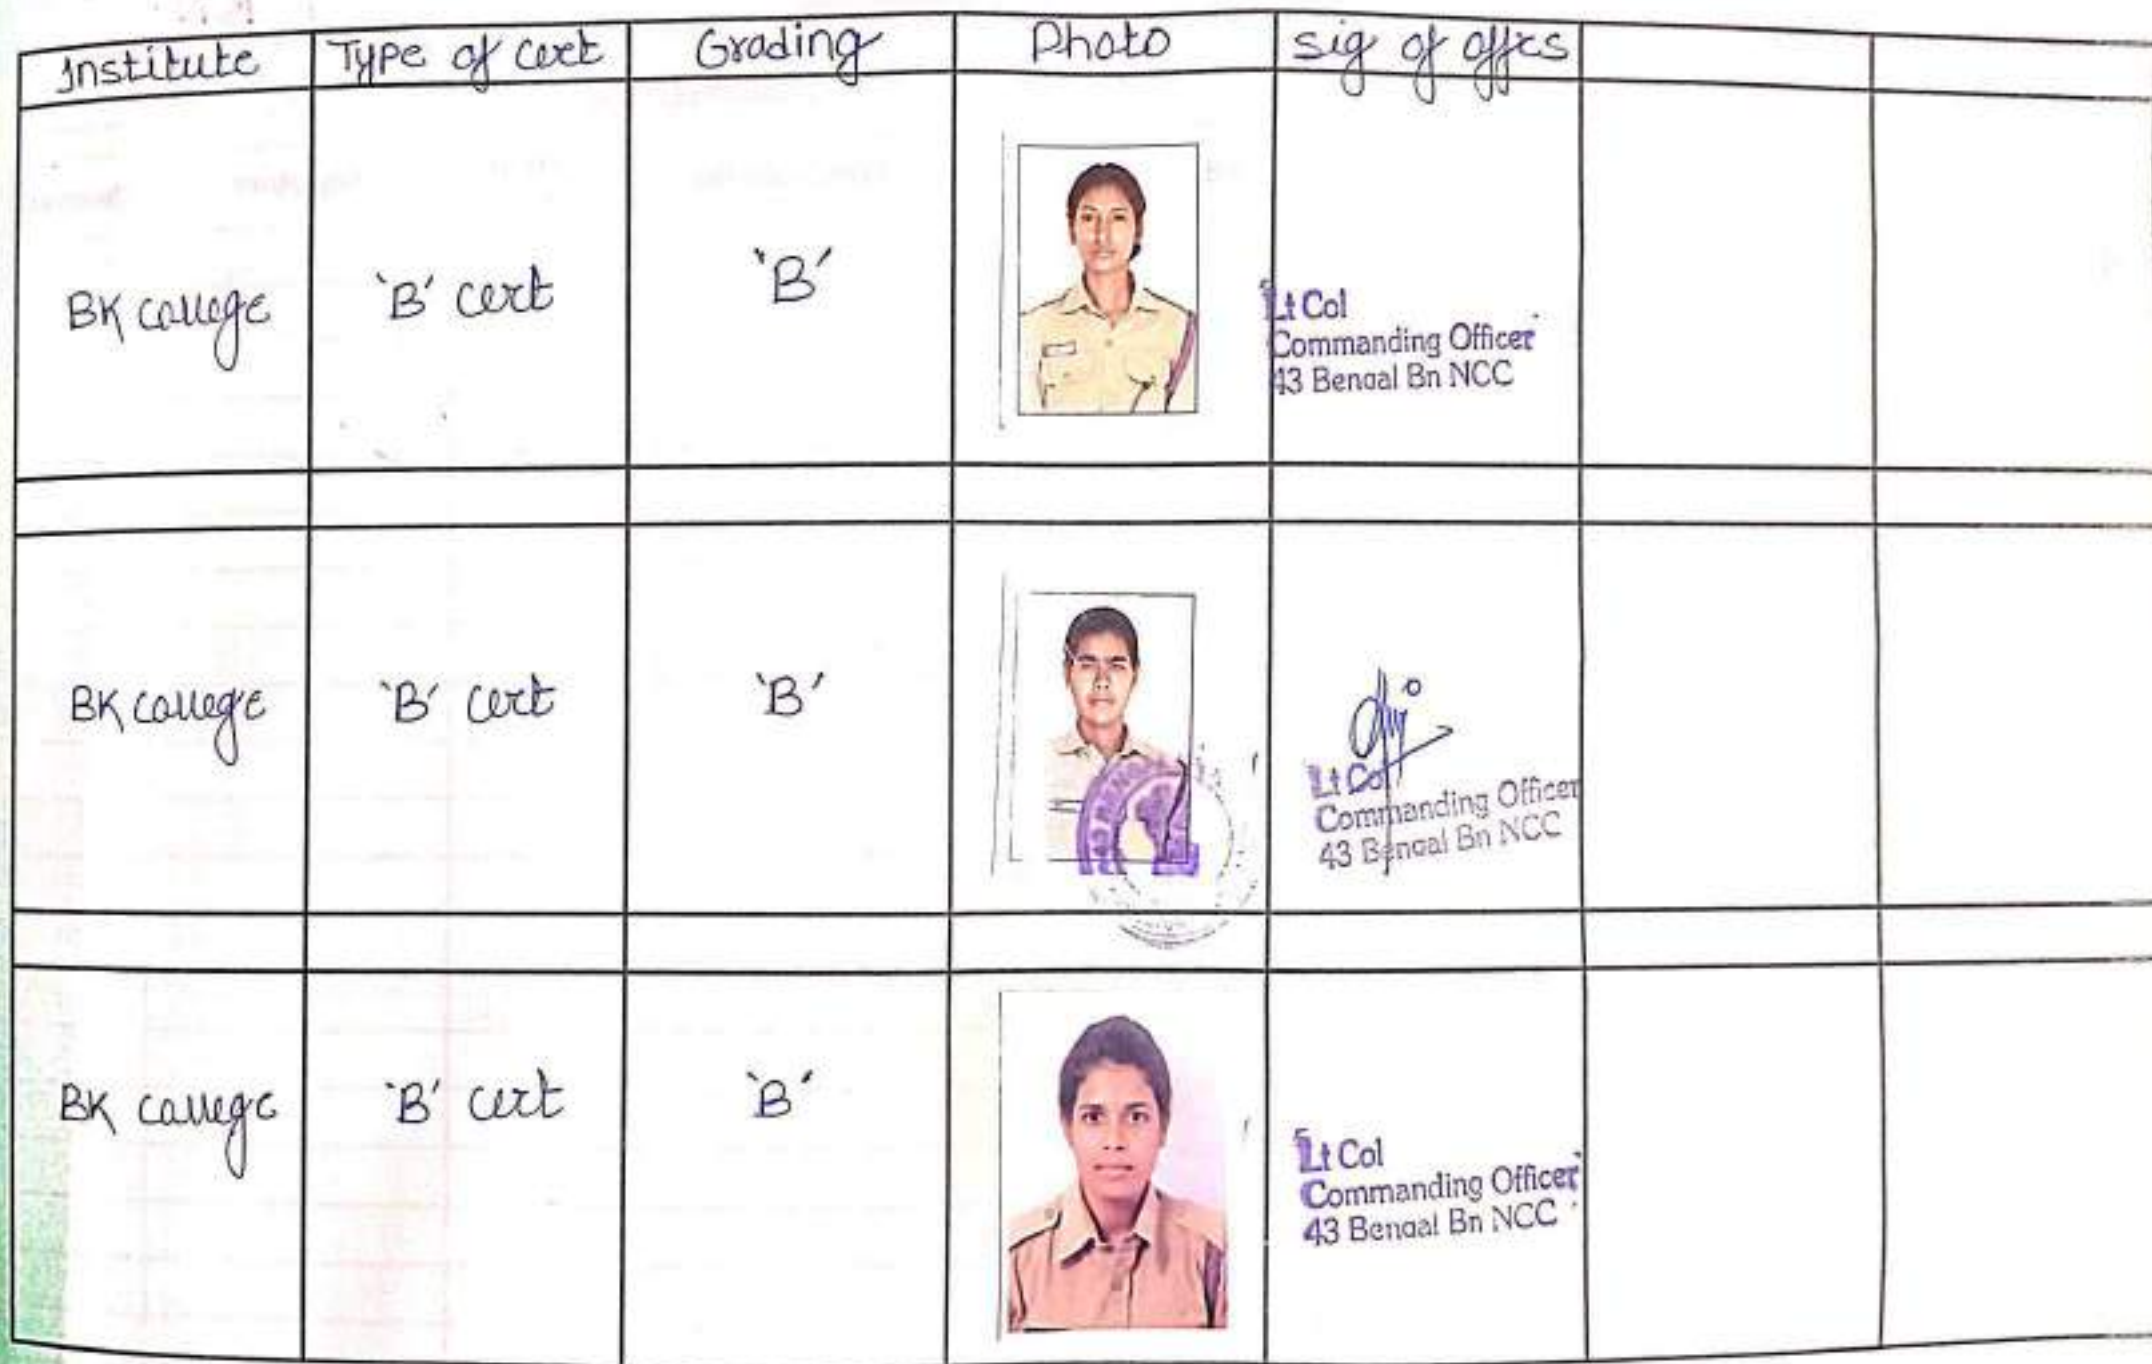 Institute Type of cert Grading Photo sig of offrs
BK college 'B' cert 'B'
Lt Col
Commanding Officer
43 Bengal Bn NCC
BK college 'B' cert 'B'
Lt Col
Commanding Officer
43 Bengal Bn NCC
BK college 'B' cert 'B'
Lt Col
Commanding Officer
43 Bengal Bn NCC